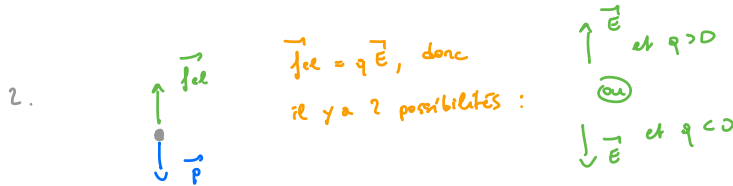 2.
f⃗el
P⃗
f⃗el = q E⃗, donc
il y a 2 possibilités :
E⃗ et q > 0
ou
E⃗ et q < 0